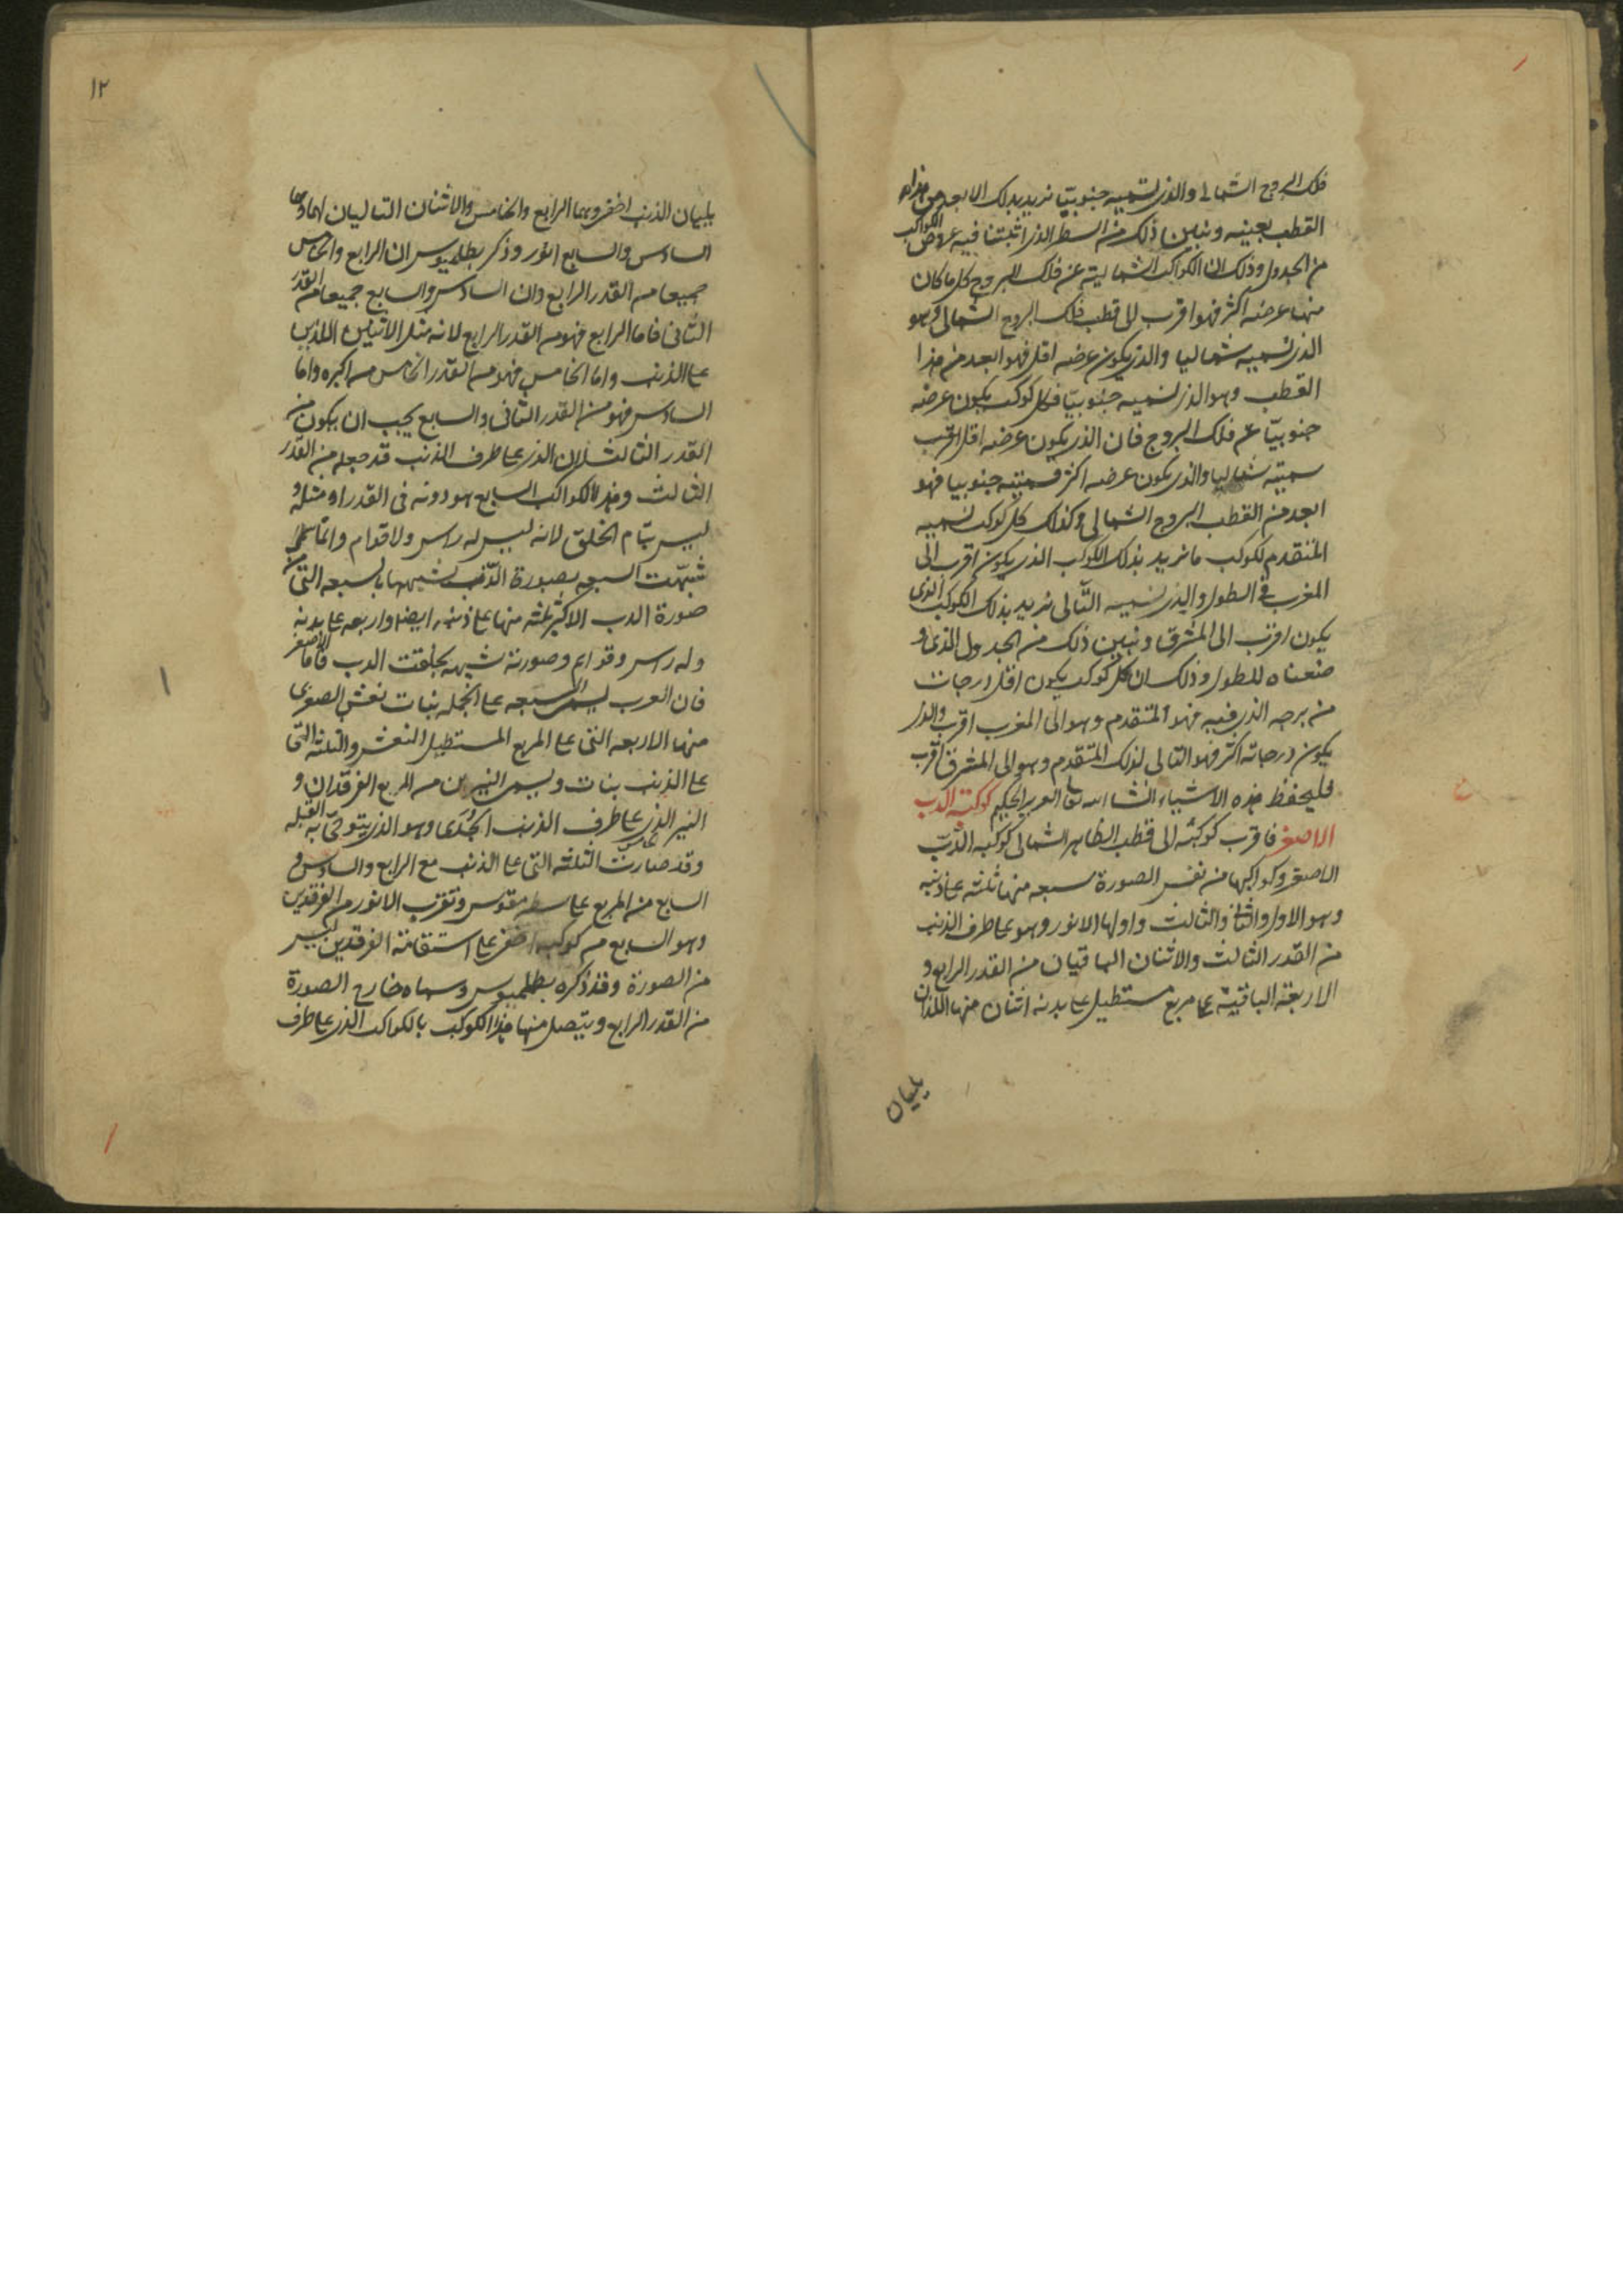 فلك البروج الشمالى والذى نسميه جنوبيّا نريد بذلك الابعد من هذا
القطب بعينه ونبين ذلك من السطر الذى اثبتنا فيه عروض الكواكب
من الجدول وذلك ان الكواكب الشمالية عن فلك البروج كل ما كان
منها عرضه اكثر فهو اقرب الى قطب فلك البروج الشمالى وهو
الذى نسميه شماليا والذى يكون عرضه اقل فهو ابعد من هذا
القطب وهو الذى نسميه جنوبيّا فكل كوكب يكون عرضه
جنوبيّا عن فلك البروج فان الذى يكون عرضه اقل اقرب
سميته شماليا والذى يكون عرضه اكثر فسميته جنوبيا فهو
ابعد من القطب البروج الشمالى وكذلك كل كوكب نسميه
المتقدم لكوكب ما نريد بذلك الكوكب الذى يكون اقرب الى
المغرب فى الطول والذى نسميه التّالى نريد بذلك الكوكب الذى
يكون اقرب الى المشرق ونبين ذلك من الجدول الذى
صنعناه للطول وذلك ان كل كوكب يكون اقل درجات
من برجه الذى فيه فهو المتقدم وهو الى المغرب اقرب والذى
يكون درجاته اكثر فهو التالى لذلك المتقدم وهو الى المشرق اقرب
فليحفظ هذه الاشياء انشا الله تعا العزيز الحكيم كوكبة الدب
الاصغر فاقرب كوكبه الى قطب الظاهر الشمالى كوكبه الدّبّ
الاصغر وكواكبها من نفس الصورة سبعه منها ثلثه على ذنبه
وهو الاول والثانى والثالث واولها الانور وهو على طرف الذنب
من القدر الثالث والاثنان الباقيان من القدر الرابع و
الاربعة الباقية على مربع مستطيل على بدنه اثنان منها اللذان
يليان
١٢
يليان الذنب اخفى وهما الرابع والخامس والاثنان التاليان لهما وهما
السادس والسابع انور وذكر بطلميوس ان الرابع والخامس
جميعا من القدر الرابع وان السادس والسابع جميعا من القدر
الثانى فاما الرابع فهو من القدر الرابع لانه مثل الاثنين اللذين
على الذنب واما الخامس فهو من القدر الخامس من اكبره واما
السادس فهو من القدر الثانى والسابع يجب ان يكون من
القدر الثالث لان الذى على طرف الذنب قد جعله من القدر
الثالث وهذا الكواكب السابع هو دونه فى القدر او مثله و
ليس بتام الخلق لانه ليس له راس ولا قوام وانما
شبّهت السبعه بصورة الدّب لشبهها بالسبعه التى من
صورة الدب الاكبر ثلثه منها على ذنبه ايضا واربعه على بدنه
وله راس وقوايم وصورته شبيهه بخلقت الدب فاما الاصغر
فان العرب يسمى السبعه على الجمله بنات نعش الصغرى
منها الاربعه التى على المربع المستطيل النعش والثلثه التى
على الذنب بنات ويسمى النيرين من المربع الفرقدان و
النير الذى على طرف الذنب الجُدَى وهو الذى يتوخّى به القبله
وقد صارت الثلثه التى على الذنب مع الرابع والسادس و
السابع من المربع على سطر مقوس وتقرب الانور من الفرقدين
وهو السابع من كوكب اخفى على استقامة الفرقدين ليس
من الصورة وقد ذكره بطلميوس وسماه خارج الصورة
من القدر الرابع ويتصل منها هذا الكوكب بالكواكب الذى على طرف